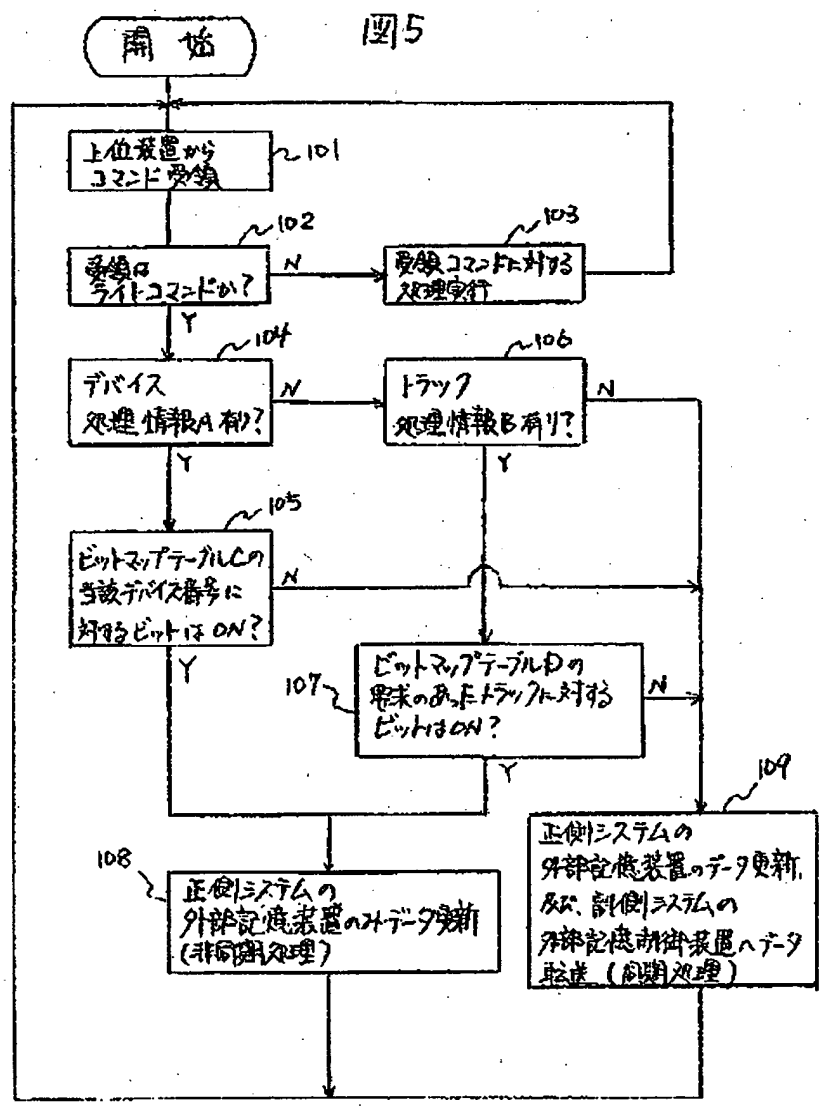 図5
開始
上位装置から
コマンド受領
101
102
受領は
ライトコマンドか?
N
Y
103
受領コマンドに対する
処理実行
104
デバイス
処理情報A有り?
N
Y
106
トラック
処理情報B有り?
N
Y
105
ビットマップテーブルCの
当該デバイス番号に
対するビットはON?
N
Y
107
ビットマップテーブルDの
要求のあったトラックに対する
ビットはON?
N
Y
108
正側システムの
外部記憶装置のみデータ更新
(非同期処理)
109
正側システムの
外部記憶装置のデータ更新,
及び、副側システムの
外部記憶制御装置へデータ
転送(同期処理)